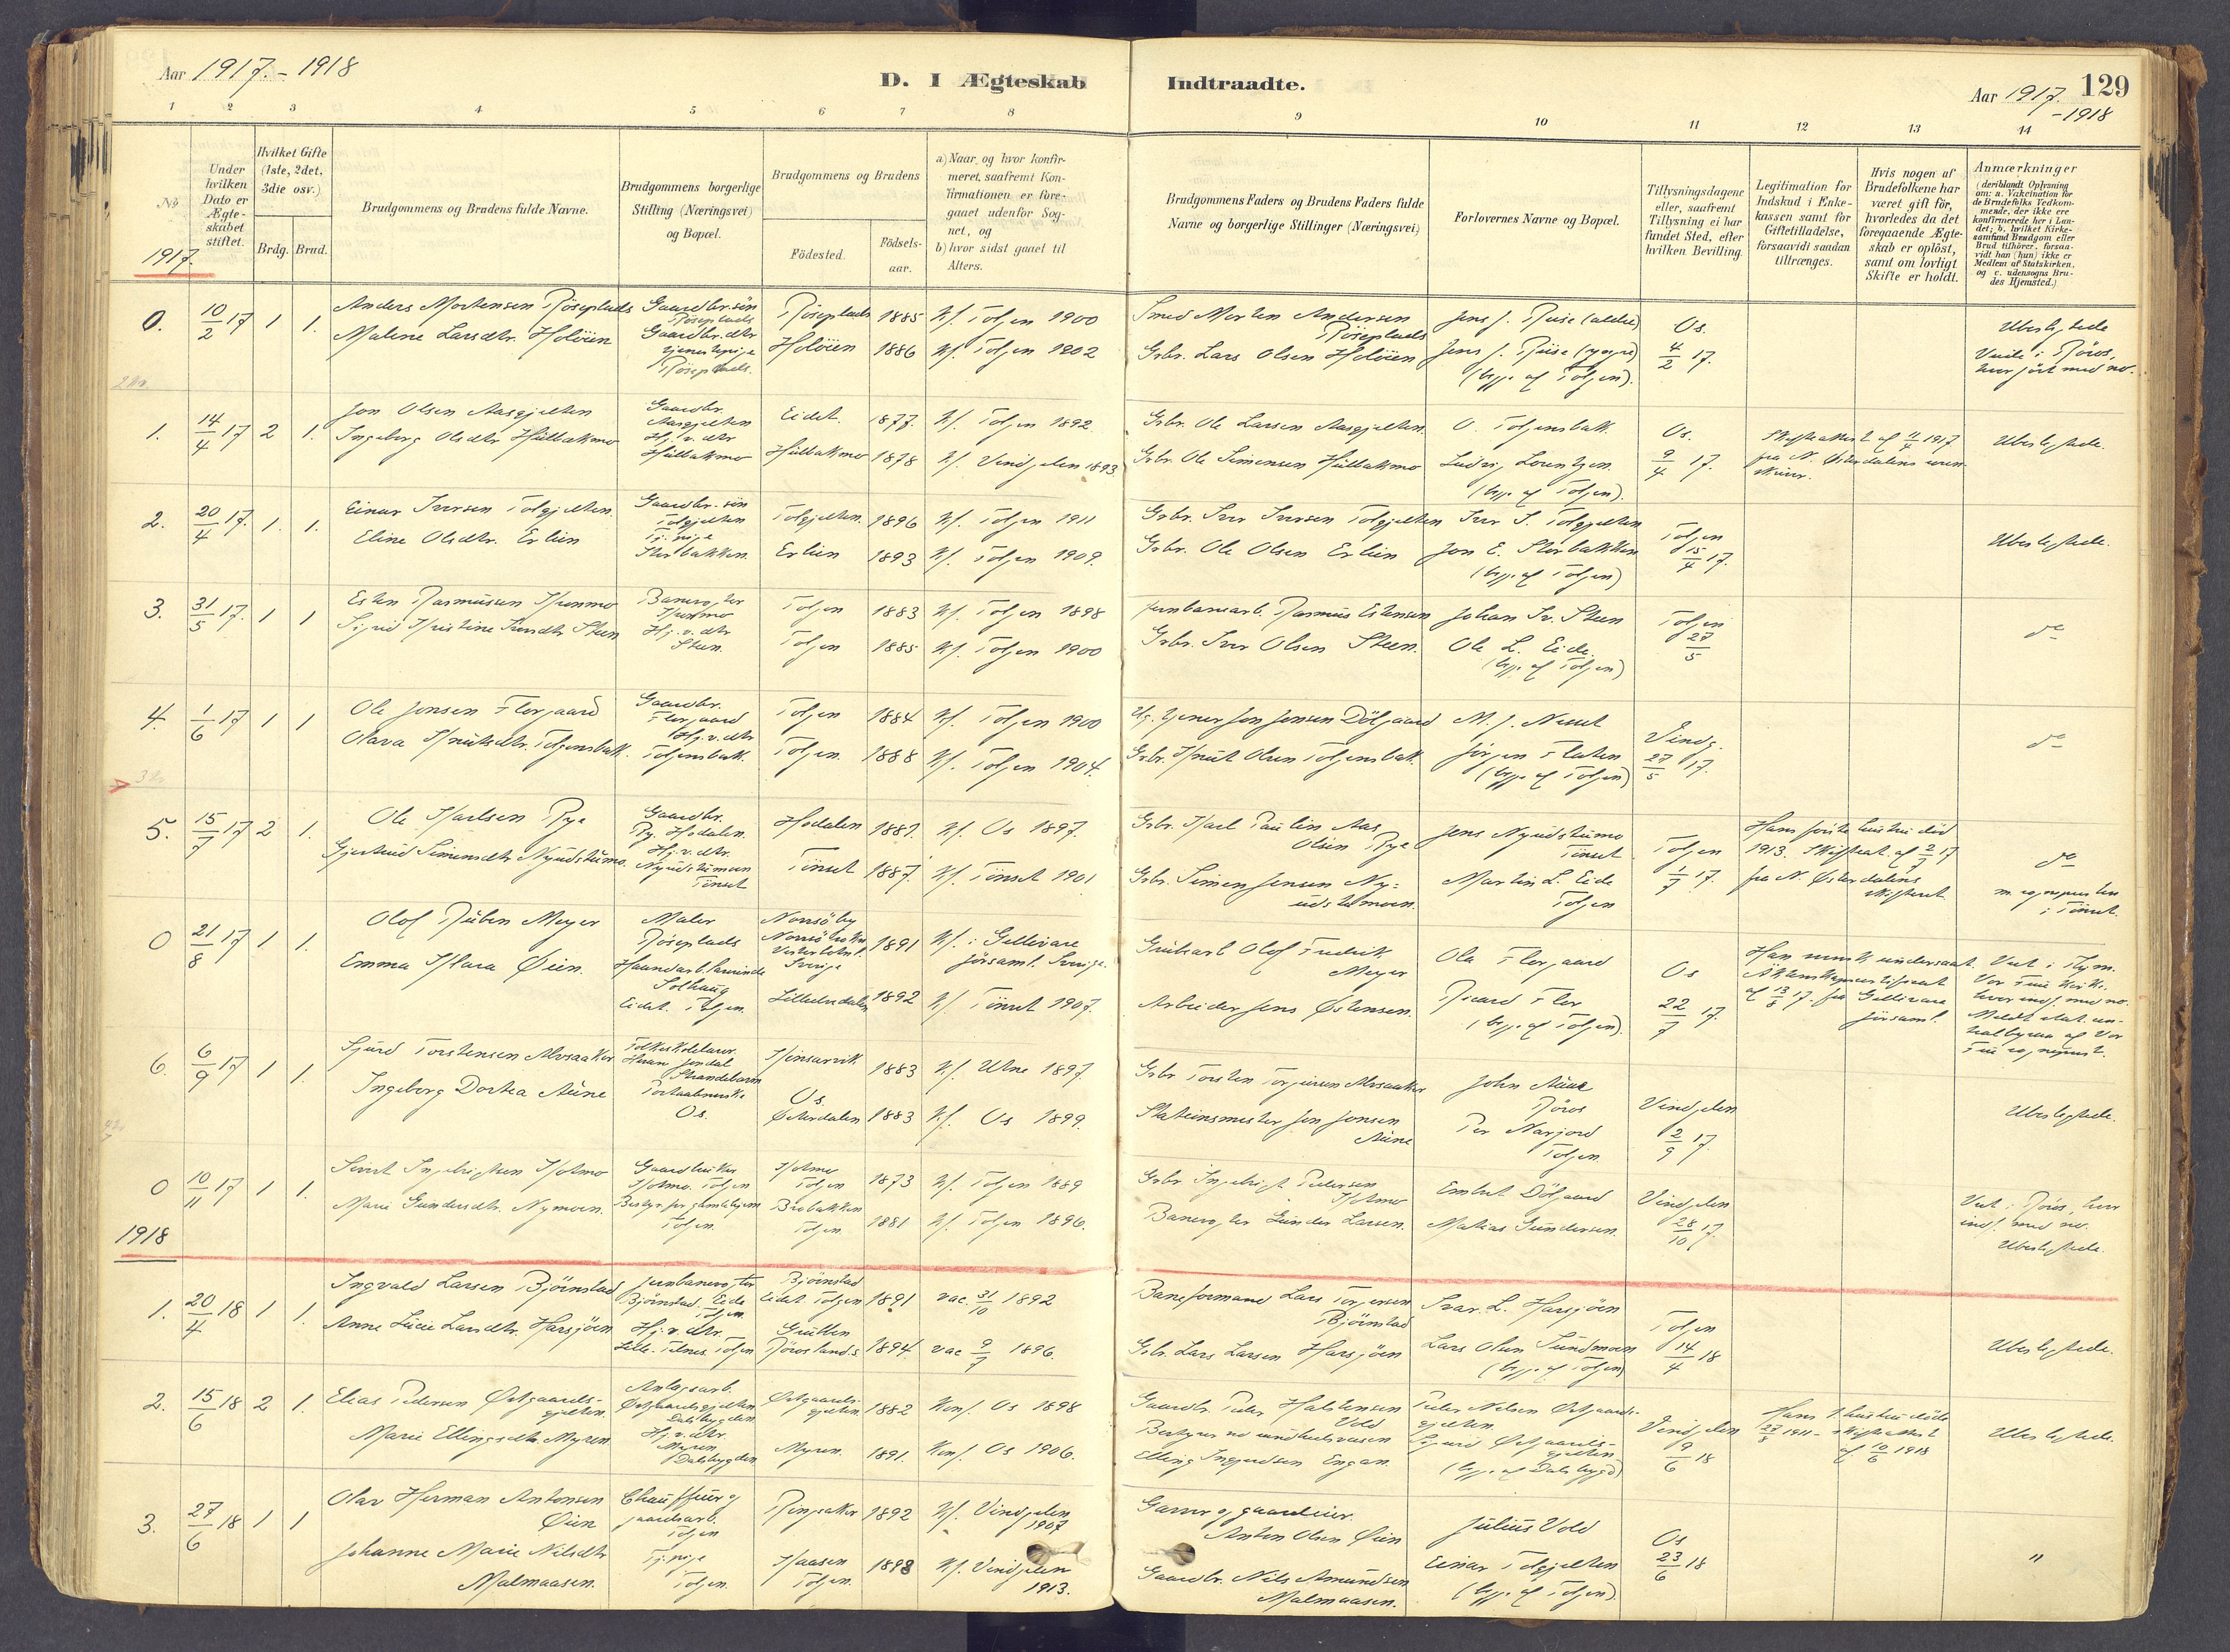 Aar 1917.-1918
D. I Ægteskab Indtraadte.
Aar 1917.-1918
129
1 2 3 4 5 6 7 8 9 10 11 12 13 14
No.
Under hvilken Dato er Ægteskabet stiftet.
Hvilket Gifte (1ste, 2det, 3die osv.)
Brdg. Brud.
Brudgommens og Brudens fulde Navne.
Brudgommens borgerlige Stilling (Næringsvei) og Bopæl.
Brudgommens og Brudens
Födested.
Födselsaar.
a) Naar, og hvor konfirmeret, saafremt Konfirmationen er foregaaet udenfor Sognet, og
b) hvor sidst gaaet til Alters.
Brudgommens Faders og Brudens Faders fulde Navne og borgerlige Stillinger (Næringsvei)
Forlovernes Navne og Bopæl.
Tillysningsdagene eller, saafremt Tillysning ei har fundet Sted, efter hvilken Bevilling.
Legitimation for Indskud i Enkekassen samt for Giftetilladelse, forsaavidt saadan tiltrænges.
Hvis nogen af Brudefolkene har været gift för, hvorledes da det foregaaende Ægteskab er oplöst, samt om lovligt Skifte er holdt.
Anmærkninger
(deriblandt Oplysning om: a. Vakcination for de Brudefolks Vedkommende, der ikke ere konfirmerede her i Landet; b. hvilket Kirkesamfund Brudgom eller Brud tilhörer, forsaavidt han (hun) ikke er Medlem af Statskirken, og c. udensogns Brudes Hjemsted.)
1917.
0. 10/2 17 1 1.
Anders Mortensen Röseplads
Malene Larsdtr. Holöien
Gaardbr. sön
Röseplads
Gaardbr. dtr
tjenestepige
Röseplads.
Röseplads 1885 Kf. Tolgen 1900
Holöien 1886 Kf. Tolgen 1902
Smed Morten Andersen
Röseplads
Grbr. Lars Olsen Holöien
Jens J. Riise (ældre)
Jens J. Riise (yngre)
(begge af Tolgen).
Os.
4/2 17.
Ubeslegtede
Viede i Röros,
hvor fört med no.
1. 14/4 17 2 1.
Jon Olsen Aasgjelten
Ingeborg Olsdtr Hulbakmo
Gaardbr.
Aasgjelten
Hj. v. dtr
Hulbakmo
Eidet. 1877. Kf. Tolgen 1892
Hulbakmo 1878 Kf. Vingelen 1893.
Grbr. Ole Larsen Aasgjelten.
Grbr. Ole Simensen Hulbakmo
O. Tolgensbakk
Ludvig Lorentzen.
(begge af Tolgen).
Os.
9/4 17.
Skifteattest af 11/4 1917
fra N. Østerdalens soren-
skriver.
Ubeslegtede.
2. 20/4 17. 1. 1.
Einar Iversen Tolgjelten.
Eline Olsdtr. Erlien
Gaardbr. sön
Tolgjelten
Tj. pige
Storbakken.
Tolgjelten. 1896 Kf. Tolgen 1911
Erlien 1893 Kf. Tolgen 1909.
Grbr. Iver Iversen Tolgjelten
Grbr. Ole Olsen Erlien
Iver I. Tolgjelten
Jon E. Storbakken
(begge af Tolgen)
Tolgen
15/4 17.
Ubeslegtede.
3. 31/5 17. 1 1
Esten Rasmussen Kunmo
Sigrid Kristine Iversdtr Steen
Banevogter
Kunmo
Hj. v. dtr
Steen.
Tolgen 1883 Kf. Tolgen 1898
Tolgen 1885 Kf. Tolgen 1900
Jernbanearb. Rasmus Estensen
Grbr. Iver Olsen Steen.
Johan Iv. Steen
Ole L. Eide.
(begge af Tolgen)
Tolgen
27/5
do
4. 1/6 17 1 1
Ole Jonsen Florgaard
Olava Knutsdtr. Tolgensbakk.
Gaardbr.
Florgaard
Hj. v. dtr
Tolgensbakk.
Tolgen 1884 Kf. Tolgen 1900
Tolgen. 1888 Kf. Tolgen 1904.
Jon Jonsen Dölgaard
Grbr. Knut Olsen Tolgensbakk.
M. J. Nesset
Jörgen Flaten
(begge af Tolgen)
Vingl.
27/5 17.
do
5. 15/7 17 2 1.
Ole Karlsen Rye
Gjertrud Simensdtr Nyudstumo.
Gaardbr.
Ry. Hodalen.
Hj. v. dtr.
Nyudstumoen
Tönset
Hodalen 1881. Kf. Os 1897.
Tönset 1887. Kf. Tönset 1901
Grbr. Karl Paulin Aas
Olsen Rye
Grbr. Simen Jensen Ny-
udstumoen.
Jens Nyudstumo
Tönset
Martin L. Eide
Tolgen
Tolgen
1/7 17.
Hans förste hustru död
1913. Skifteat. af 2/7 17
fra N. Østerdalens
skifteret.
do
i Tönset.
0 21/8 17 1 1.
Olof Ruben Meyer
Emma Klara Øien.
Maler
Röseplads
Haandarb.lærerinde
Solhaug
Eidet. Tolgen.
Sverige 1891 Kf. i Gellivare
församl. Sverige.
Lilleelvedalen 1892 Kf. Tönset 1907.
Grubearb Olof Fredrik
Meyer
Arbeider Jens Østensen.
Ola Florgaard
Ricard Flor
(begge af Tolgen).
Os
22/7 17.
Han svensk undersaat.
af 13/8 17. fra Gellivare
församl.
Viet i Thjm.
Vor Frue kirke.
hvor indf. med no.
6. 6/9 17 1 1.
Sjurd Torstensen Alvsaaker
Ingeborg Dortea Aune
Folkeskolelærer.
Strandebarm
Os.
Kinsarvik 1883 Kf. Utne 1897.
Os.
Østerdalen 1883 Kf. Os 1899.
Grbr Torsten Torgeirsen Alvsaaker
Stationsmester Jon Jonsen
Aune
John Aune
Röros
Per Narjord
Tolgen.
Vingelen
2/9 17.
Ubeslegtede.
0 10/11 17 1 1.
Sivert Ingebrigtsen Kotmo
Marie Gundersdtr. Nymoen.
Gaardbruker
Kotmo. Tolgen
Tolgen.
Kotmo
Tolgen 1873 Kf. Tolgen 1889
Brobakken
Tolgen. 1881 Kf. Tolgen 1896.
Grbr Ingebrigt Pedersen
Kotmo
Banevogter Gunder Larsen.
Embret Dölgaard
Matias Gundersen.
Vingelen
28/10 17.
Viet i Röros, hvor
indf. med no.
Ubeslegtede.
1918
1. 20/4 18 1 1.
Ingvald Larsen Björnstad
Anne Lucie Larsdtr. Harsjöen
Jernbanevogter
Björnstad. Eide
Tolgen
Hj. v. dtr.
Lille-Telnes. Tolgen
Björnstad
Eidet Tolgen 1891 vac. 31/10 1892
Grutlen
Röros lands. 1894. vac 9/7 1896.
Baneformand Lars Torgersen
Björnstad
Grbr. Lars Larsen Harsjöen
Ivar. L. Harsjöen
Lars Olsen Sundmoen
(begge af Tolgen)
Tolgen
14/4 18
Ubeslegtede.
2. 15/6 18 2 1.
Elias Pedersen Østgaards-
gjelten.
Marie Ellingsdtr. Myren
Anlægsarb.
Østgaardsgjelten
Dalsbygden
Hj. v. dtr.
Myren
Dalsbygden
Østgaards-
gjelten. 1882 Konf. Os 1898
Myren. 1891. Konf. Os 1906.
Gaardbr. Peder Halstensen
Vold
Elling Ingvedsen Engan.
Peder Nilsen Østgaards-
gjelten.
Sjurd Østgaards-
gjelten
(begge af Dalsbygd)
Vingelen
9/6 18
Hans 1. hustru döde
27/8 1911 - skifteattest
af 10/6 1918
Ubeslegtede.
3. 27/6 18 1 1
Olav Herman Antonsen
Øien
Johanne Marie Nilsdtr
Malmaasen.
Chauffeur og
gaardsarb.
Tolgen
Tj. pige
Tolgen.
Ringsaker 1892 Kf. Vingelen
1907
Kaasen
Tolgen. 1898 Kf. Vingelen
1913.
Garver og gaardeier.
Anton Olsen Øien
Gaardbr. Nils Amundsen
Malmaasen.
Julius Vold
Einar Tolgjelten
(begge af Tolgen).
Os
23/6 18
"